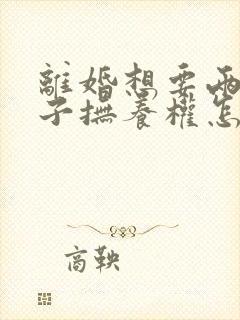 離婚想要兩
子撫養權怎
商鞅